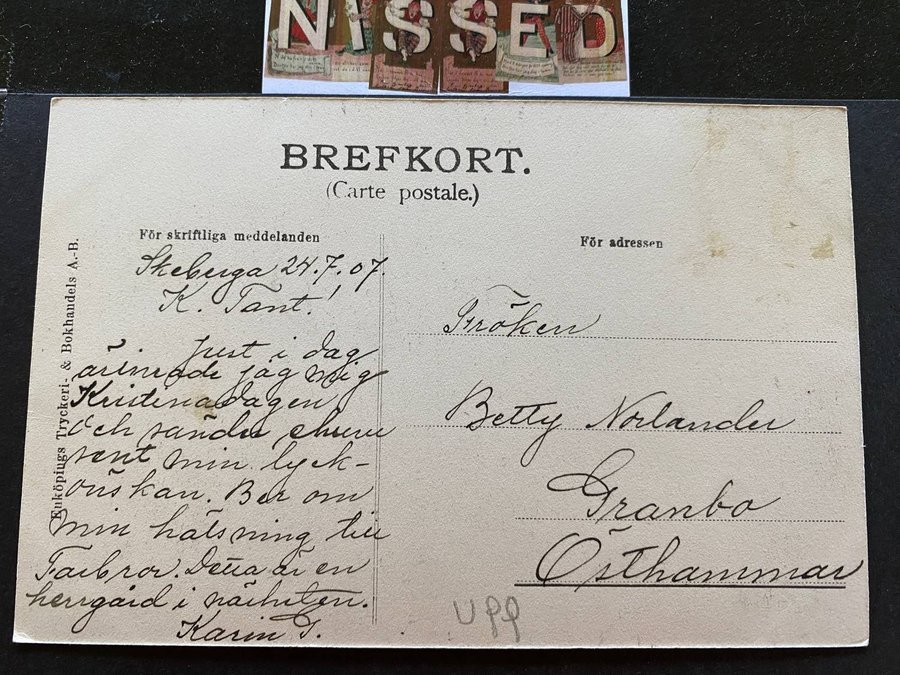 NISSED
BREFKORT.
(Carte postale.)
För skriftliga meddelanden
För adressen
Enköpings Tryckeri- & Bokhandels A.-B.
Skeberga 24.7.07.
K. Tant!
Just i dag
ärinrade jag mig
Kristinadagen
och sänder ehuru
sent min lyck-
önskan. Ber om
min hälsning till
Farbror. Detta är en
herrgård i närheten.
Karin G.
Fröken
Betty Norlander
Granbo
Östhammar
upp